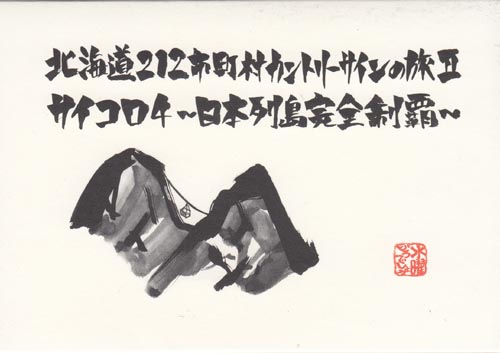 北海道212市町村カントリーサインの旅II
サイコロ4～日本列島完全制覇～
水曜
どうでしょう